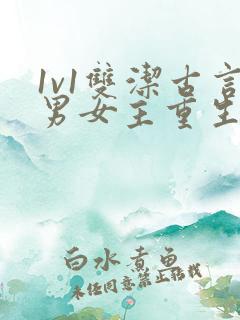 1v1雙潔古言
男女主重生
白水煮魚
未经同意禁止转载